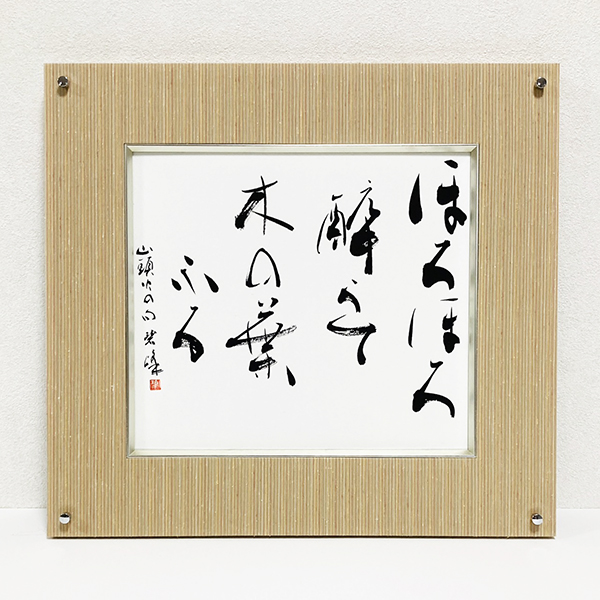 ほろほろ
酔うて
木の葉
ふる
山頭火の句